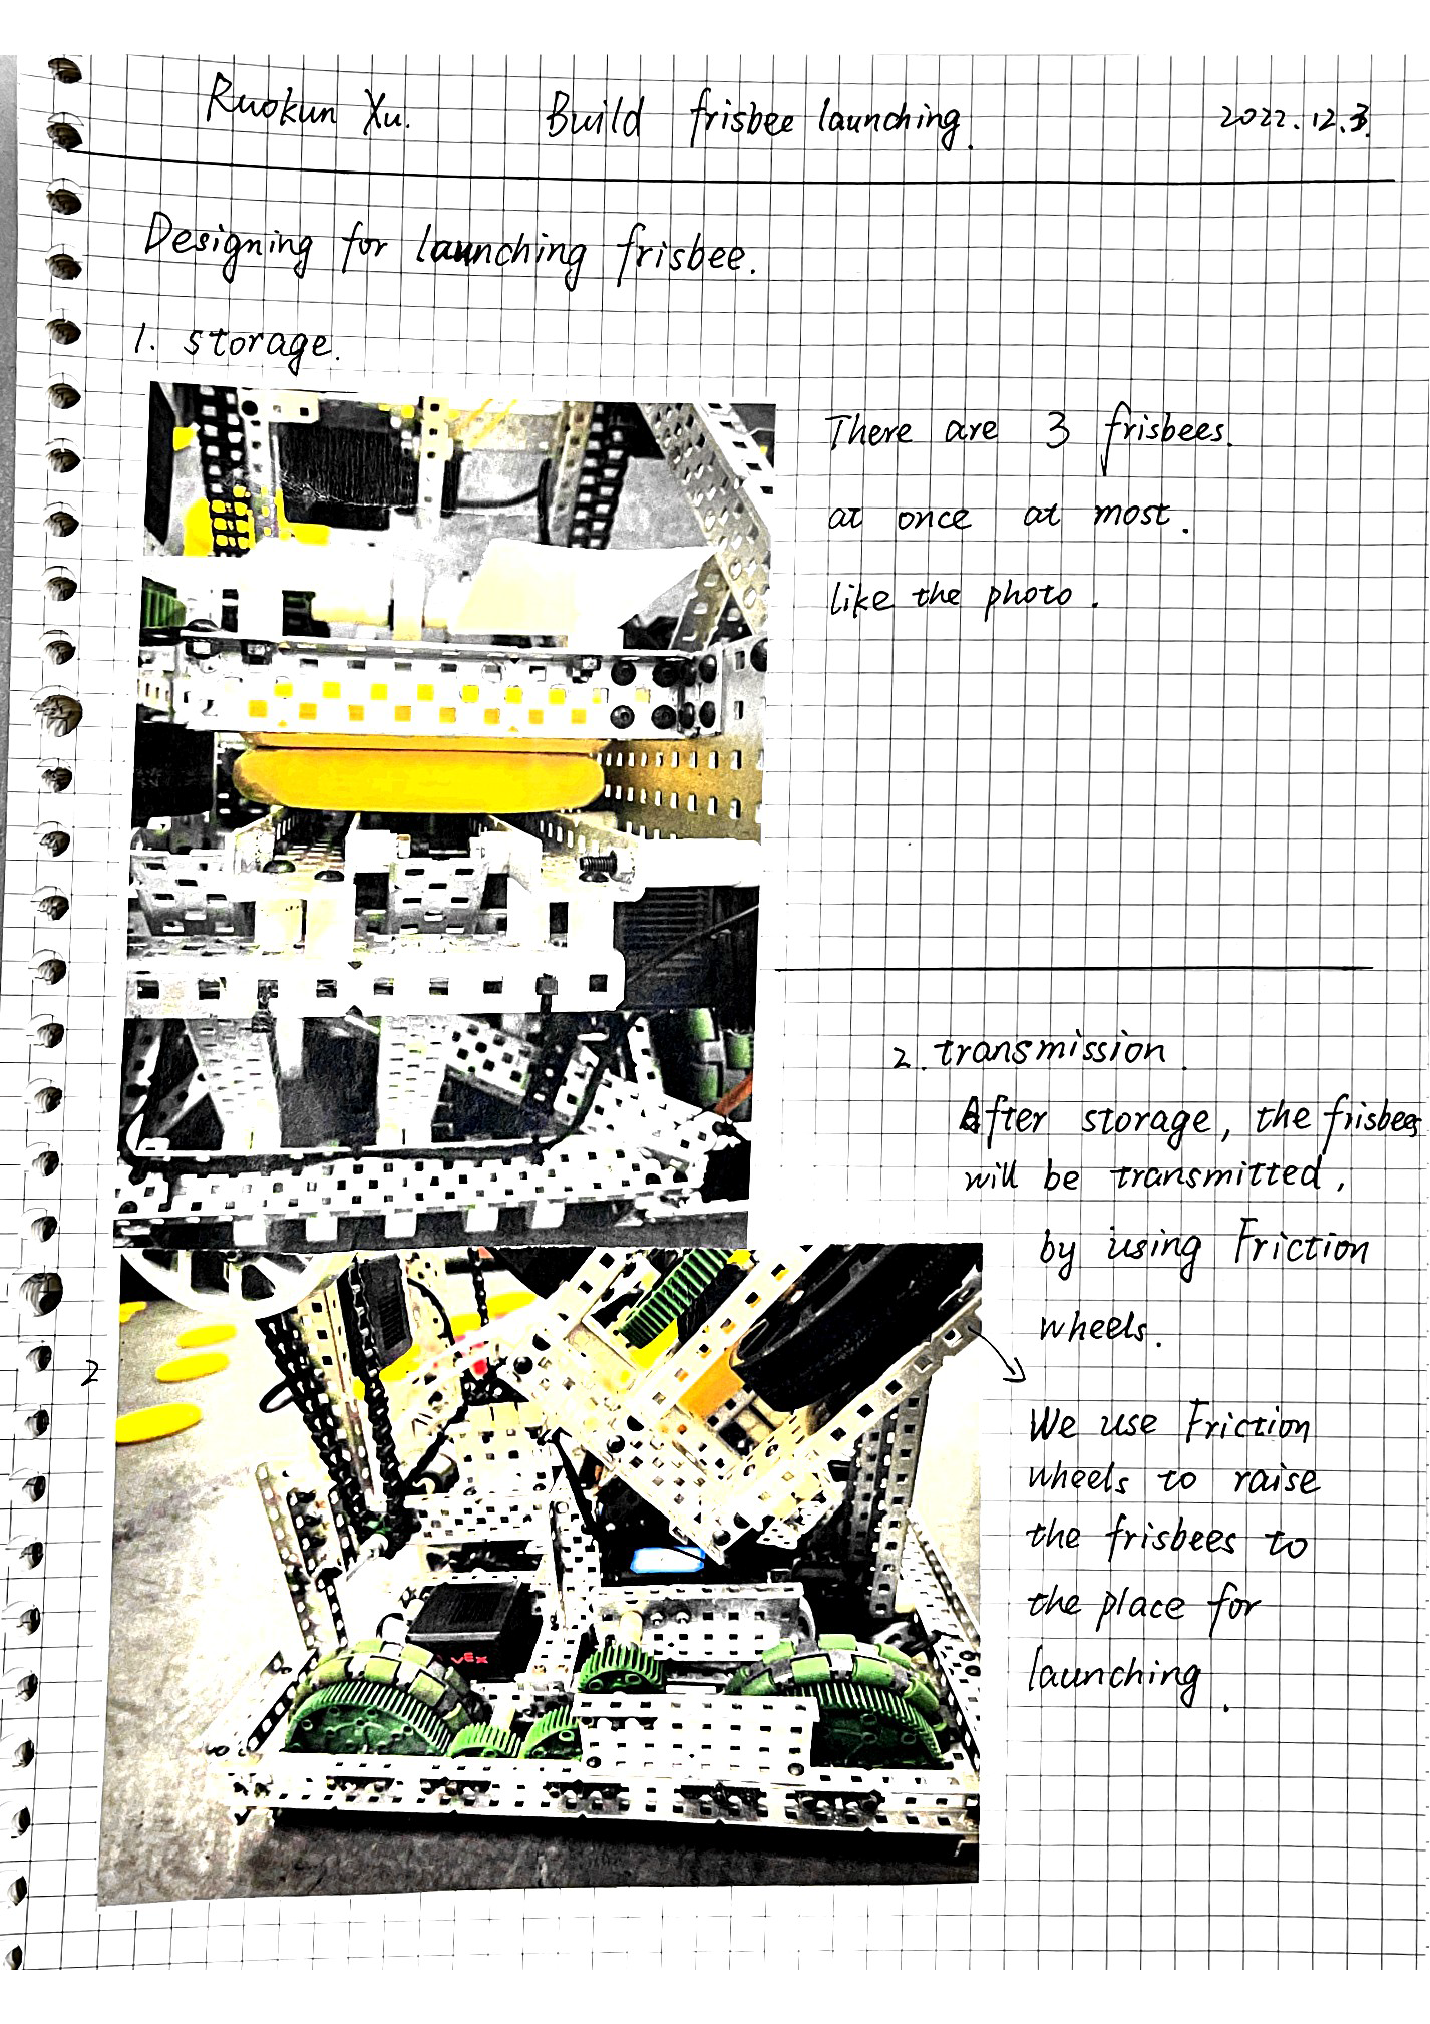 Ruokun Xu. Build frisbee launching. 2022.12.3.
Designing for launching frisbee.
1. storage.
There are 3 frisbees.
at once at most.
like the photo.
2. transmission.
After storage, the frisbees
will be transmitted,
by using Friction
wheels.
2
We use Friction
wheels to raise
the frisbees to
the place for
launching.
VEX